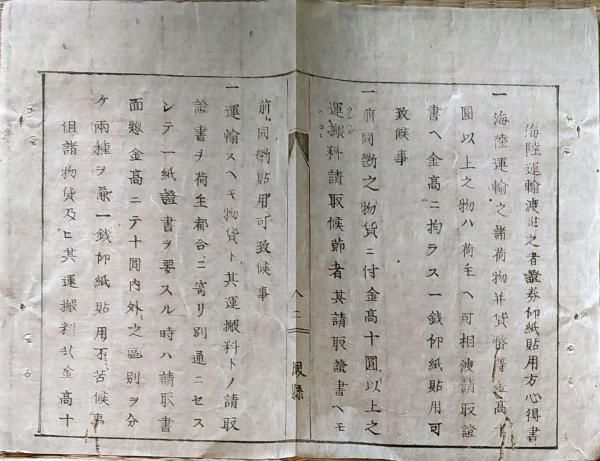 海陸運輸渡世之者證券印紙貼用方心得書
一海陸運輸之諸荷物并貨幣得金高十
圓以上之物ハ荷主ヘ可相渡請取證
書ヘ金高ニ拘ラス一銭印紙貼用可
致候事
一前同断之物貨ニ付金高十圓以上之
運搬料請取候節者其請取證書ヘモ
前同断貼用可致候事
八二
一運輸スヘキ物貨ト其運搬料トノ請取
證書ヲ荷主都合ニ寄リ別通ニセス
シテ一紙證書ヲ要スル時ハ請取書
面惣金高ニテ十圓内外之區別ヲ分
ケ兩種ヲ兼一銭印紙貼用不苦候事
但諸物貨及ヒ其運搬料共金高十